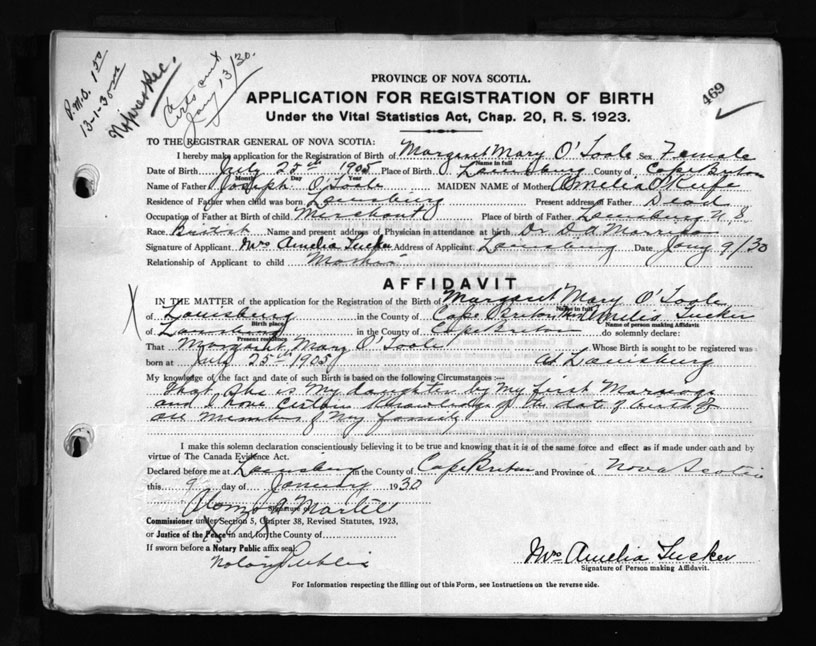 P.M.B. 1 00
13-1-30
Certs sent
Jany 13/30.
469
PROVINCE OF NOVA SCOTIA.
APPLICATION FOR REGISTRATION OF BIRTH
Under the Vital Statistics Act, Chap. 20, R. S. 1923.
TO THE REGISTRAR GENERAL OF NOVA SCOTIA:
I hereby make application for the Registration of Birth of Margaret Mary O'Toole Sex Female
Name in full
Date of Birth July 25th 1905 Place of Birth Louisburg County of Cape Breton
Month Day Year
Name of Father Joseph O'Toole MAIDEN NAME of Mother Amelia O'Keife
Residence of Father when child was born Louisburg Present address of Father Dead
Occupation of Father at Birth of child Merchant Place of birth of Father Louisburg N S
Race British Name and present address of Physician in attendance at birth Dr D A Morrison
Signature of Applicant Mrs Amelia Tucker Address of Applicant Louisburg Date Jany 9/30
Relationship of Applicant to child Mother
AFFIDAVIT
IN THE MATTER of the application for the Registration of the Birth of Margaret Mary O'Toole
Name in full
of Louisburg in the County of Cape Breton Amelia Tucker
Birth place Name of person making Affidavit
of Louisburg in the County of Cape Breton do solemnly declare:
Present residence
That Margaret Mary O'Toole Whose Birth is sought to be registered was
born at July 25th 1905 at Louisburg
My knowledge of the fact and date of such Birth is based on the following Circumstances:—
That she is My daughter by My first Marriage
and I have Certain Knowledge of the date of birth of
all Members of My family
I make this solemn declaration conscientiously believing it to be true and knowing that it is of the same force and effect as if made under oath and by
virtue of The Canada Evidence Act.
Declared before me at Louisburg in the County of Cape Breton and Province of Nova Scotia
this 9 day of January 1930
Alonzo J Martell
Signature of
Commissioner under Section 5, Chapter 38, Revised Statutes, 1923,
or Justice of the Peace in and for the County of
If sworn before a Notary Public affix seal.
Notary Public
Mrs Amelia Tucker
Signature of Person making Affidavit.
For Information respecting the filling out of this Form, see Instructions on the reverse side.